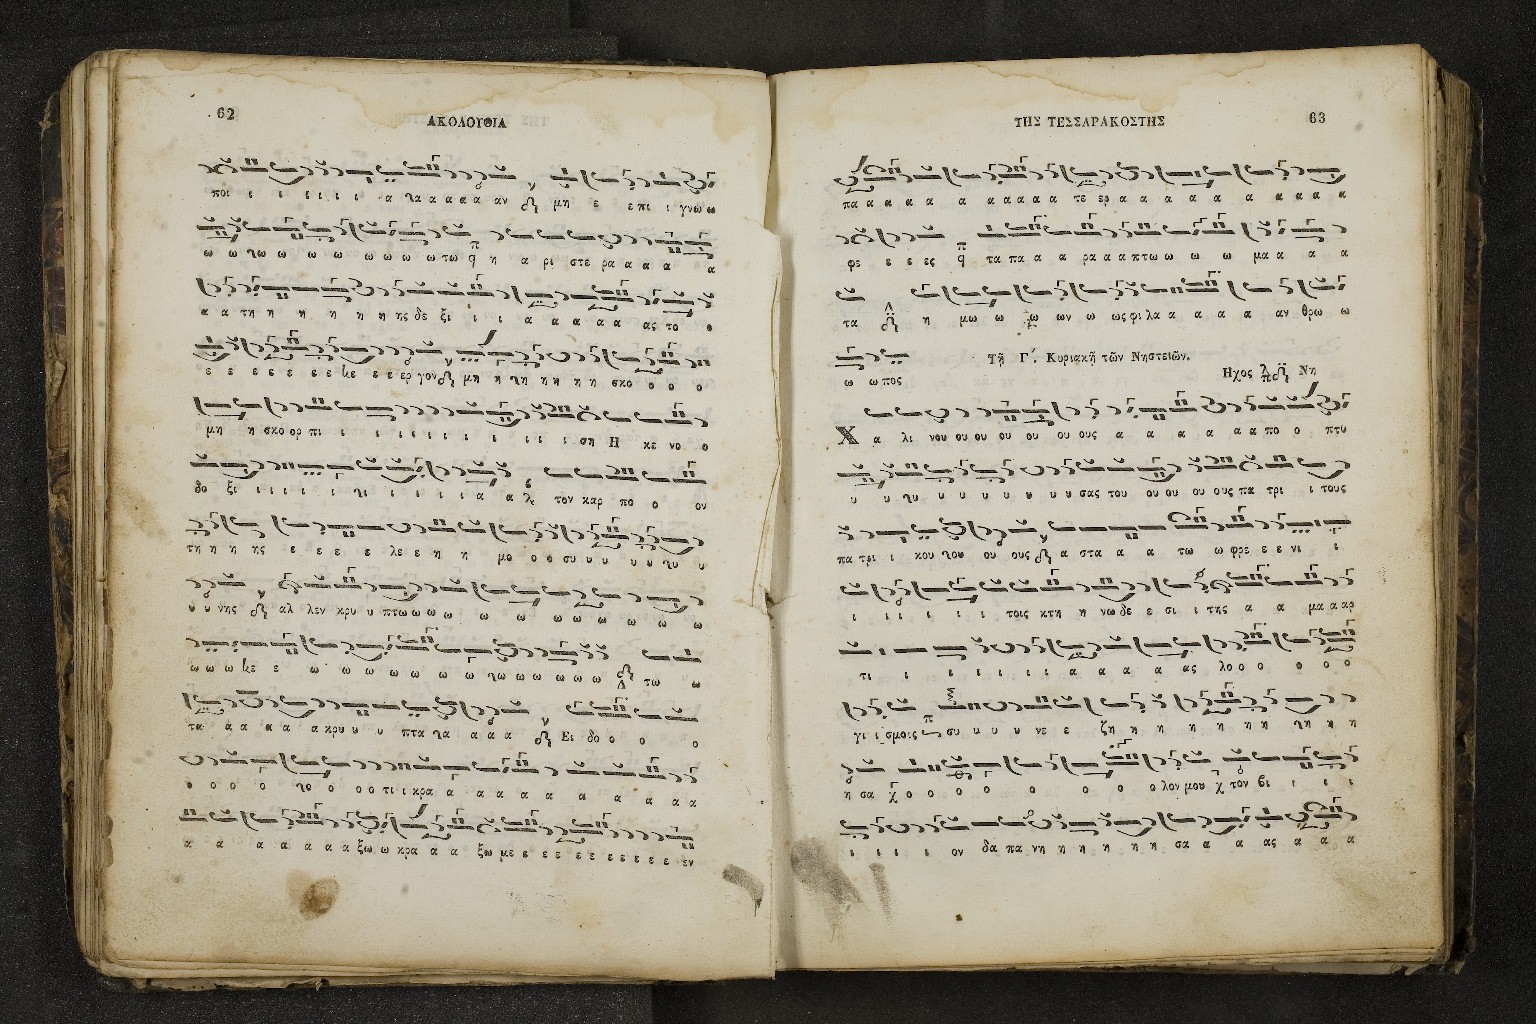 62
ΑΚΟΛΟΥΘΙΑ
ποι ι ι ι ι ι ι α γα α α α α αν μη ε επι ι γνω ω
ω ω γω ω ω ω ω ω ω ω τω q η α ρι στε ρα α α α α
α α τη η η η η η ης δε ξι ι ι α α α α α ας το ο
ε ε ε ε ε ε ε κε ε ε ερ γον μη η γη η η η η σκο ο ο ο
μη η σκο ορ πι ι ι ι ι ι ι ι ι ι ι ι ι ση Η κε νο ο
δο ξι ι ι ι ι ι γι ι ι ι ι ι α α τον καρ πο ο ον
τη η η ης ε ε ε ε λε ε η η μο ο ο συ υ υ υ υ γυ υ
υ υ νης αλ λεν κρυ υ πτω ω ω ω ω ω ω ω ω ω ω ω ω
ω ω ω κε ε ω ω ω ω ω ω ω γω ω ω ω ω ω τω ω
τα α α α α α κρυ υ υ πτα γα α α α Ει δο ο ο ο
ο ο ο ο ο γο ο ο ο τι ι κρα α α α α α α α α α α
α α α α α α α ξω ω κρα α α ξω με ε ε ε ε ε ε ε ε ε ε εν
ΤΗΣ ΤΕΣΣΑΡΑΚΟΣΤΗΣ
63
πα α α α α α α α α α α τε ερ α α α α α α α α α α
φε ε ε ες q τα πα α α ρα α α πτω ω ω ω μα α α α
τα η μω ω ω ων ω ως φι λα α α α α αν θρω ω
ω ω πος Τῇ Γ΄. Κυριακῇ τῶν Νηστειῶν.
Ηχος Νη
Χ α λι νου ου ου ου ου ου ους α α α α α α πο ο πτυ
υ υ γυ υ υ υ υ υ υ υ σας του ου ου ου ους πα τρι ι τους
πα τρι ι κου γου ου ους α στα α α α τω ω φρε ε ε νι ι ι
ι ι ι ι ι ι τοις κτη η νω δε ε σι ι της α α μα α αρ
τι ι ι ι ι ι ι α α α α α ας λο ο ο ο ο ο ο
γι ι σμοις συ υ υ υ νε ε ζη η η η η η η γη η η
η σα χ ο ο ο ο ο ο ο ο ο λον μου χ τον βι ι ι ι
ι ι ι ι ον δα πα νη η η η η η σα α α ας α α α